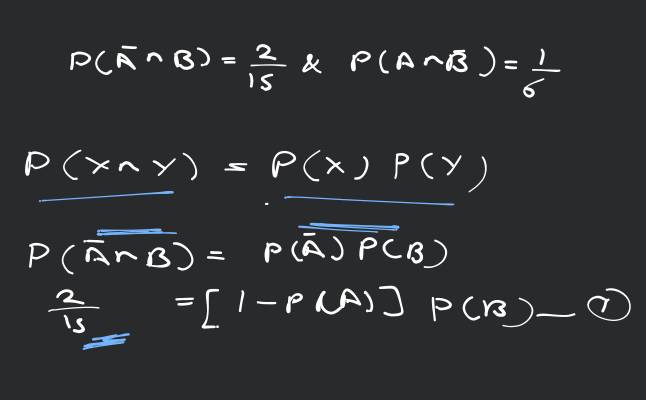 P(Ā∩B) = 2/15 & P(A∩B̄) = 1/6
P(X∩Y) = P(X) P(Y)
P(Ā∩B) = P(Ā) P(B)
2/15 = [1-P(A)] P(B) — ①